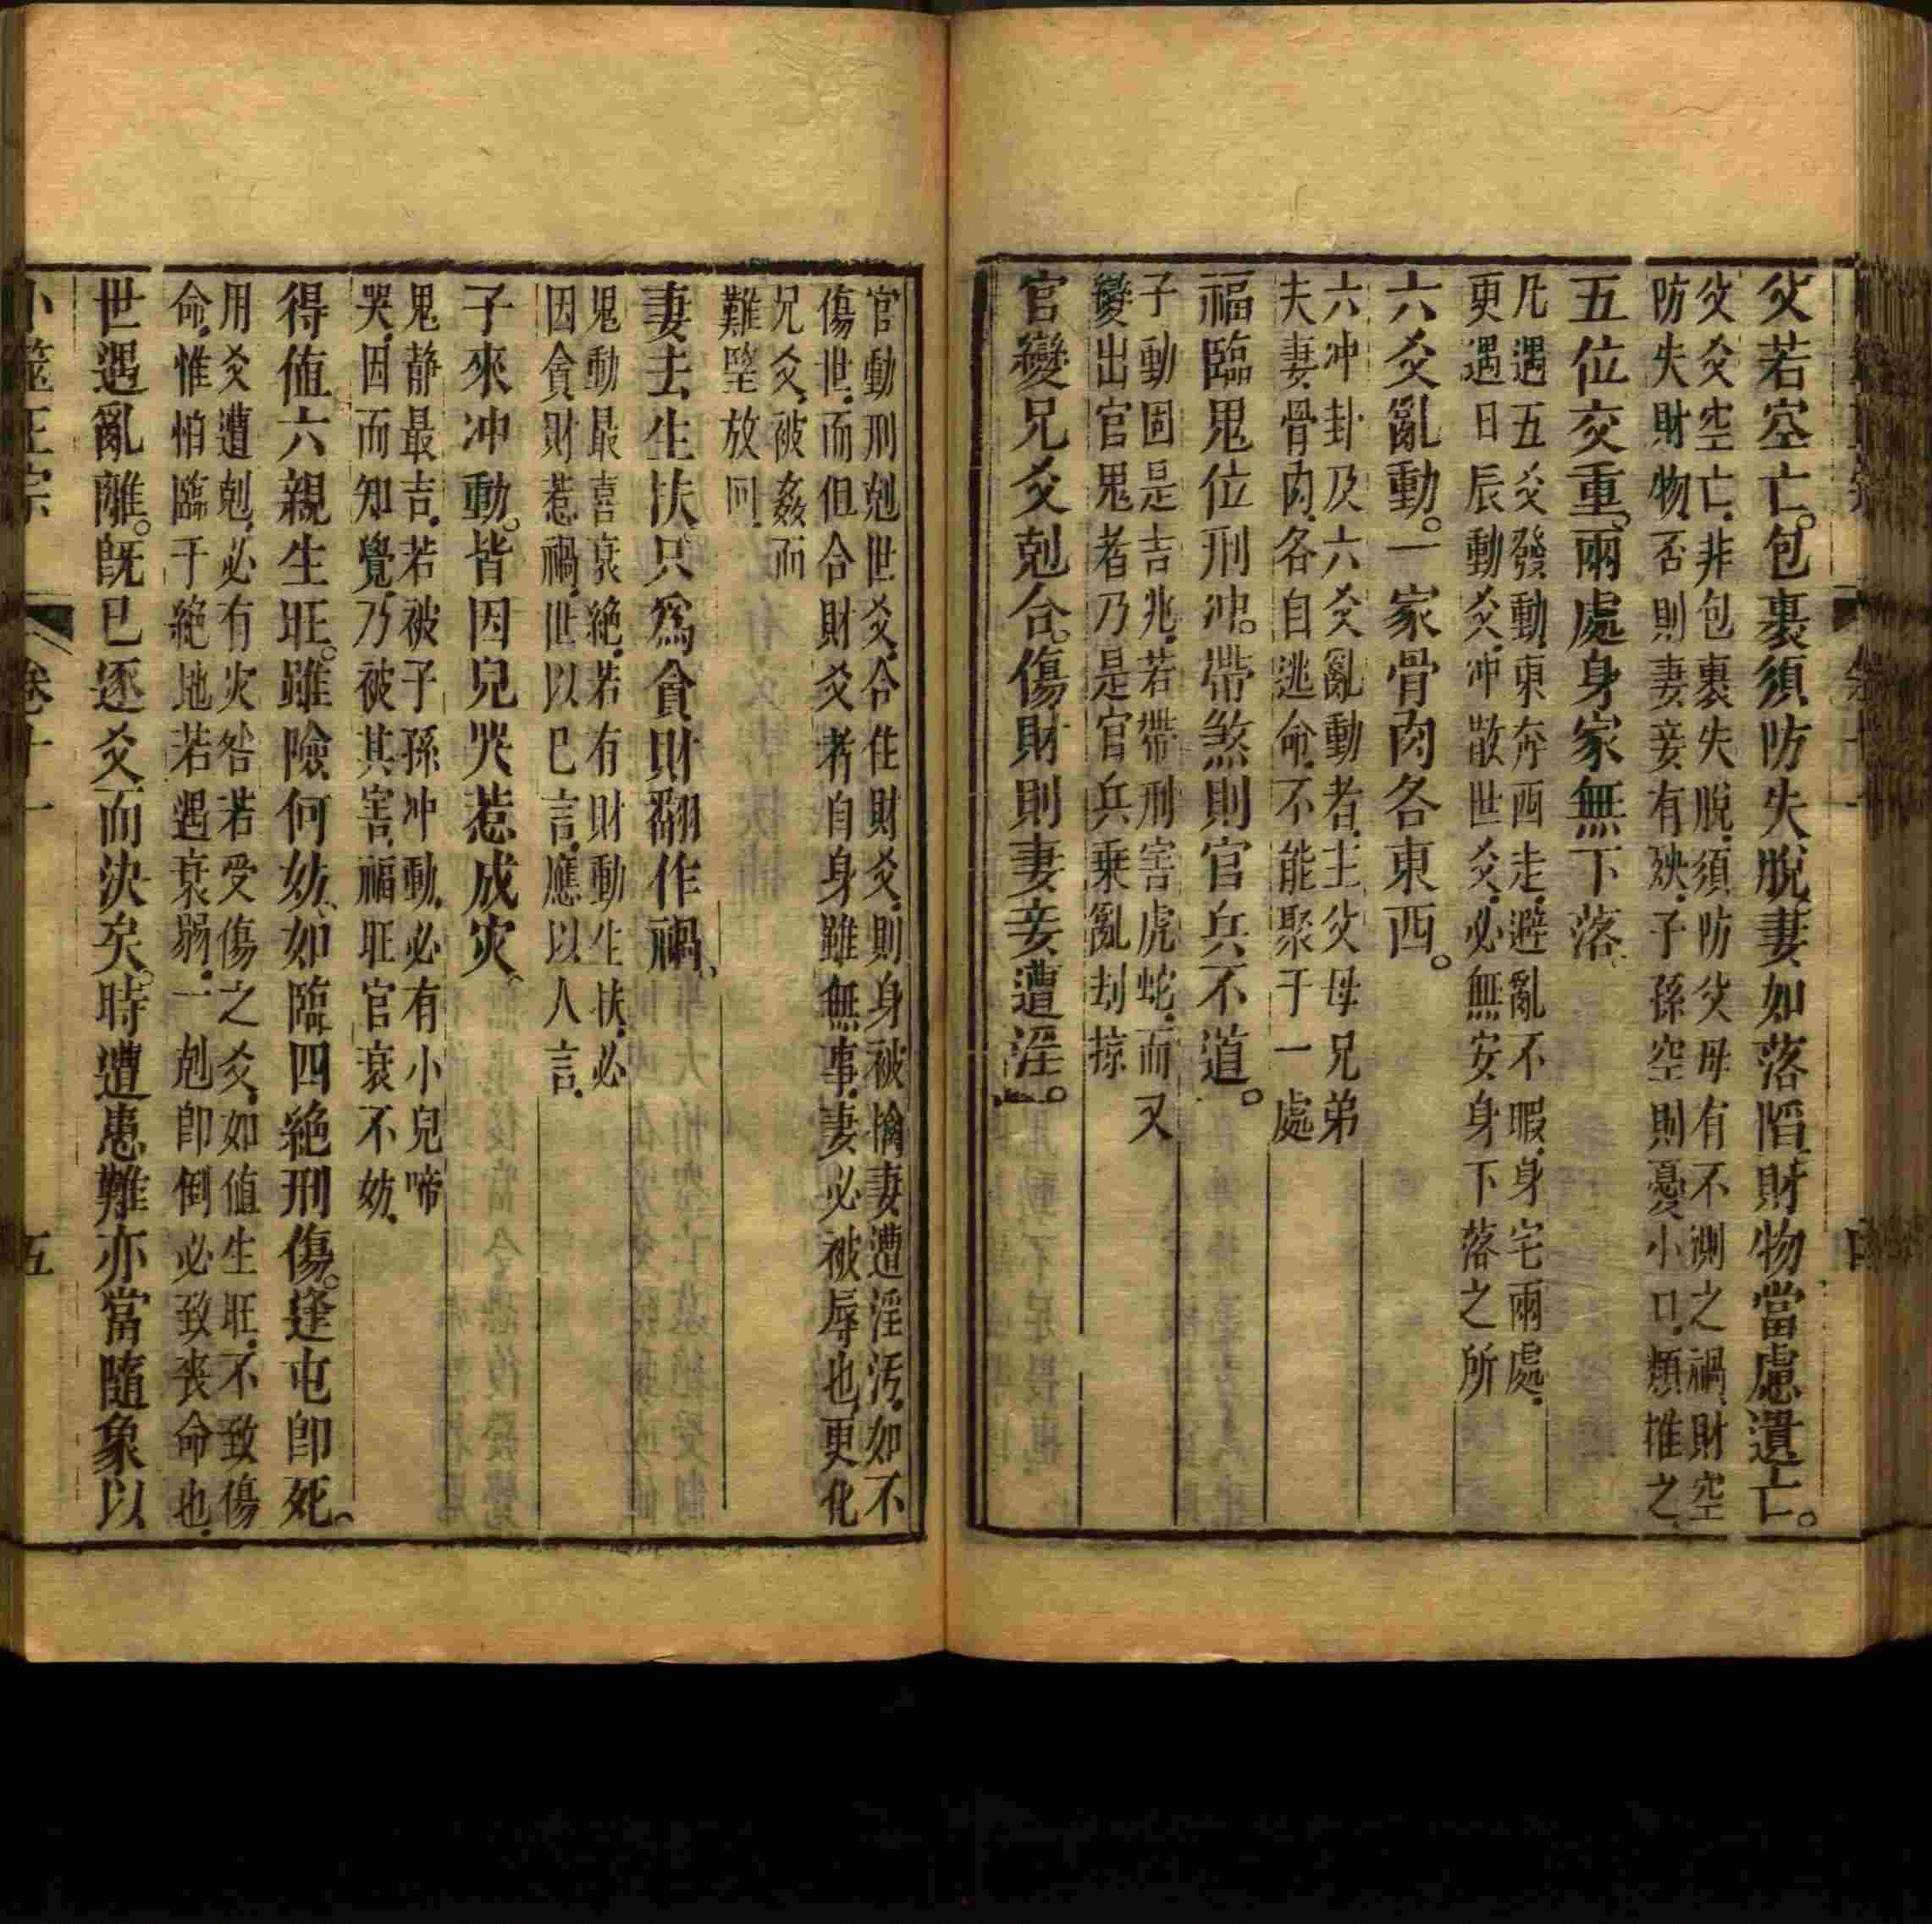 父若空亡。包裹須防失脫。妻如落陷。財物當慮遺亡。
父爻空亡非包裹失脫須防父母有不測之禍財空
防失財物否則妻妾有殃子孫空則憂小口類推之
五位交重。兩處身家無下落。
凡遇五爻發動東奔西走避亂不暇身宅兩處
更遇日辰動爻冲散世爻必無安身下落之所
六爻亂動。一家骨肉各東西。
六冲卦及六爻亂動者主父母兄弟
夫妻骨肉各自逃命不能聚于一處
福臨鬼位刑冲。帶煞則官兵不道。
子動固是吉兆若帶刑害虎蛇而又
變出官鬼者乃是官兵乗亂刦掠
官變兄爻剋合。傷財則妻妾遭淫。
官動刑剋世爻合住財爻則身被擒妻遭淫汚如不
傷世而但合財爻者自身雖無事妻必被辱也更化
兄爻被姦而
難望放回
妻去生扶只爲貪財翻作禍、
鬼動最喜衰絶若有財動生扶必
因貪財惹禍世以巳言應以人言
子來冲動。皆因兒哭惹成灾、
鬼静最吉若被子孫冲動必有小兒啼
哭因而知覺乃被其害福旺官衰不妨
得值六親生旺。雖險何妨、如臨四絶刑傷。逢屯卽死。
用爻遭剋必有灾咎若受傷之爻如值生旺不致傷
命惟怕臨于絶地若遇衰弱一剋卽倒必致喪命也
世遇亂離。旣已逐爻而決矣。時遭患難亦當隨象以
卜筮正宗 卷十一 五